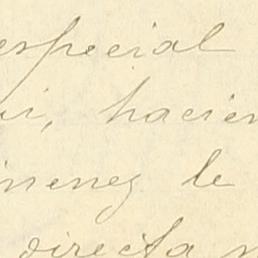 especial
ui, hacien
imenez le
directa